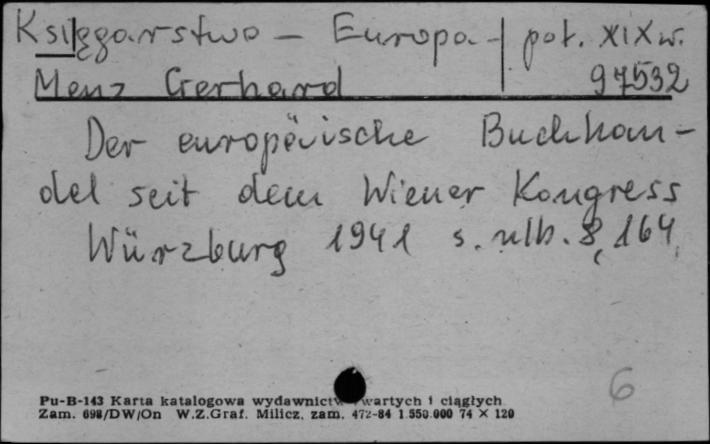 Księgarstwo - Europa - pot. XIX w.
Menz Gerhard 97532
Der europäische Buchhan-
del seit dem Wiener Kongress
Würzburg 1941 s. nlb. 8, 164
6
Pu-B-143 Karta katalogowa wydawnictw zwartych i ciągłych
Zam. 698/DW/On W.Z.Graf. Milicz, zam. 472-84 1.550.000 74 × 120